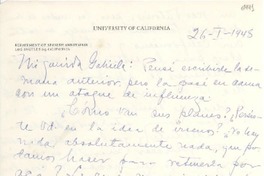 UNIVERSITY OF CALIFORNIA
26-I-1945
DEPARTMENT OF SPANISH AMERICAN
LOS ANGELES 24, CALIFORNIA
Mi querida Gabriela: Pensé escribirle la se-
mana anterior, pero la pasé en cama
con un ataque de influenza
¿Cómo van sus planes? ¿Persis-
te Ud. en la idea de irnos? ¿No hay
nada, absolutamente nada, que po-
damos hacer para retenerla por